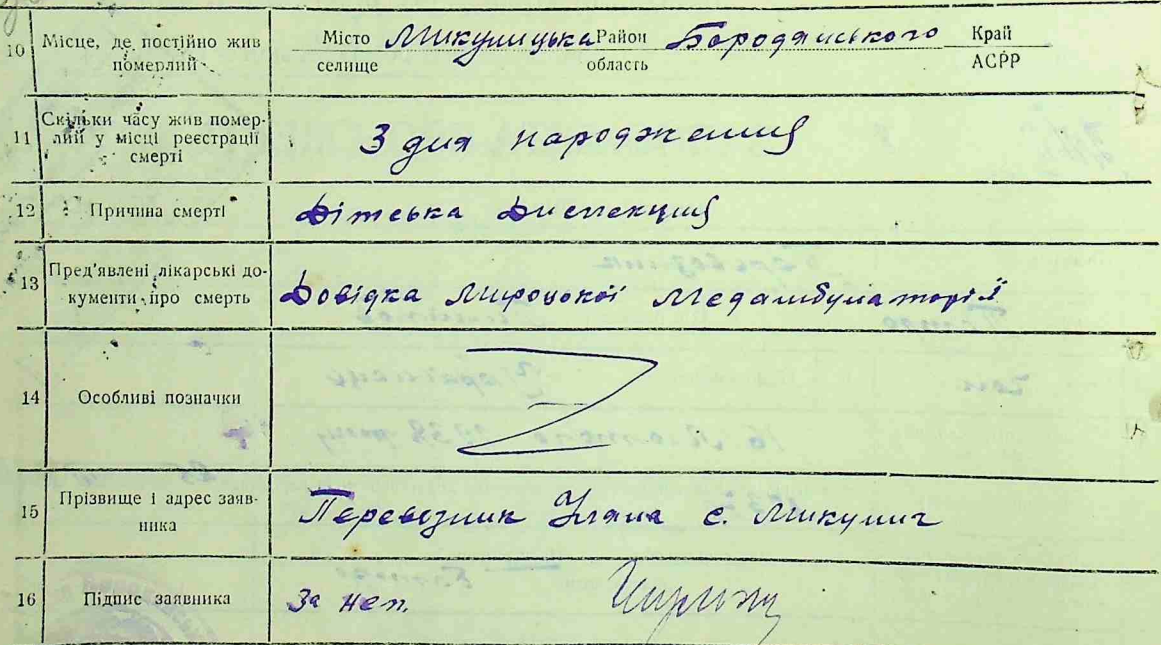 10 Місце, де постійно жив померлий
Місто Микулицька Район Бородянського Край
селище область АСРР
11 Скільки часу жив померлий у місці реєстрації смерті
З дня народження
12 Причина смерті
Дітська Диспекция
13 Пред'явлені лікарські документи про смерть
Довідка Мироцької Медамбулаторії
14 Особливі позначки
Z
15 Прізвище і адрес заявника
Перевозник Уляна с. Микулич
16 Підпис заявника
За неп.